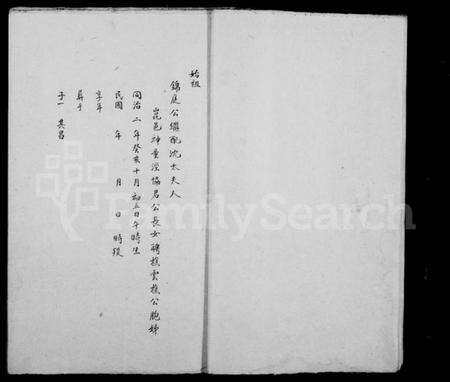 始祖
錦庭公繼配沈太夫人
崑邑神童涇協君公長女聘攄雲攄公胞姊
同治二年癸亥十月初五日午時生
民國 年 月 日 時歿
享年
葬于
子一 其昌
FamilySearch